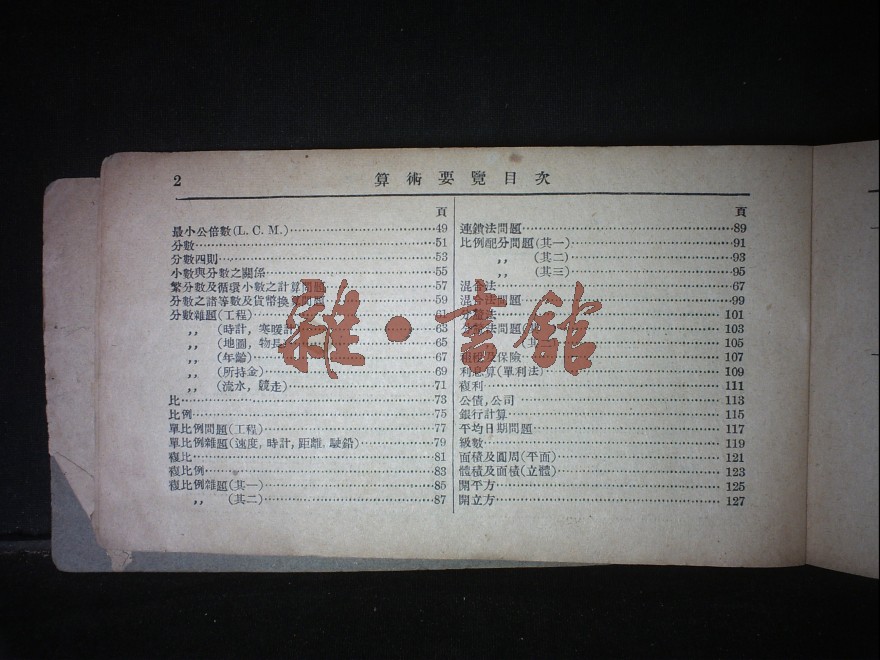 2
算術要覽目次
頁
最小公倍數(L. C. M.)⋯⋯49
分數⋯⋯51
分數四則⋯⋯53
小數與分數之關係⋯⋯55
繁分數及循環小數之計算問題⋯⋯57
分數之諸等數及貨幣換算問題⋯⋯59
分數雜題(工程)⋯⋯61
,, (時計, 寒暖計)⋯⋯63
,, (地圖, 物長)⋯⋯65
,, (年齡)⋯⋯67
,, (所持金)⋯⋯69
,, (流水, 競走)⋯⋯71
比⋯⋯73
比例⋯⋯75
單比例問題(工程)⋯⋯77
單比例雜題(速度, 時計, 距離, 駛船)⋯⋯79
複比⋯⋯81
複比例⋯⋯83
複比例雜題(其一)⋯⋯85
,, (其二)⋯⋯87
頁
連鎖法問題⋯⋯89
比例配分問題(其一)⋯⋯91
,, (其二)⋯⋯93
,, (其三)⋯⋯95
混合法⋯⋯67
混合法問題⋯⋯99
法⋯⋯101
法問題⋯⋯103
⋯⋯105
租稅及保險⋯⋯107
利息算(單利法)⋯⋯109
複利⋯⋯111
公債, 公司⋯⋯113
銀行計算⋯⋯115
平均日期問題⋯⋯117
級數⋯⋯119
面積及圓周(平面)⋯⋯121
體積及面積(立體)⋯⋯123
開平方⋯⋯125
開立方⋯⋯127
雜·書館